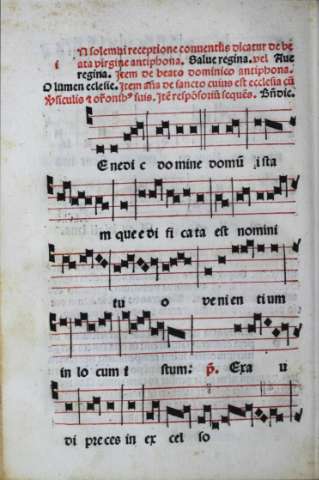 IN solemni receptione conventus dicatur de be
ata virgine antiphona. Salue regina. vel Aue
regina. Item de beato dominico antiphona.
O lumen ecclesie. Item aña de sancto cuius est ecclesia cũ
suis. Itẽ respõsoriũ sequẽs. Bñdic.
Enedi c domine domũ ista
m que edi fi ca ta est nomini
tu o veni en tium
in lo cum i stum: Exa u
di pre ces in ex cel so